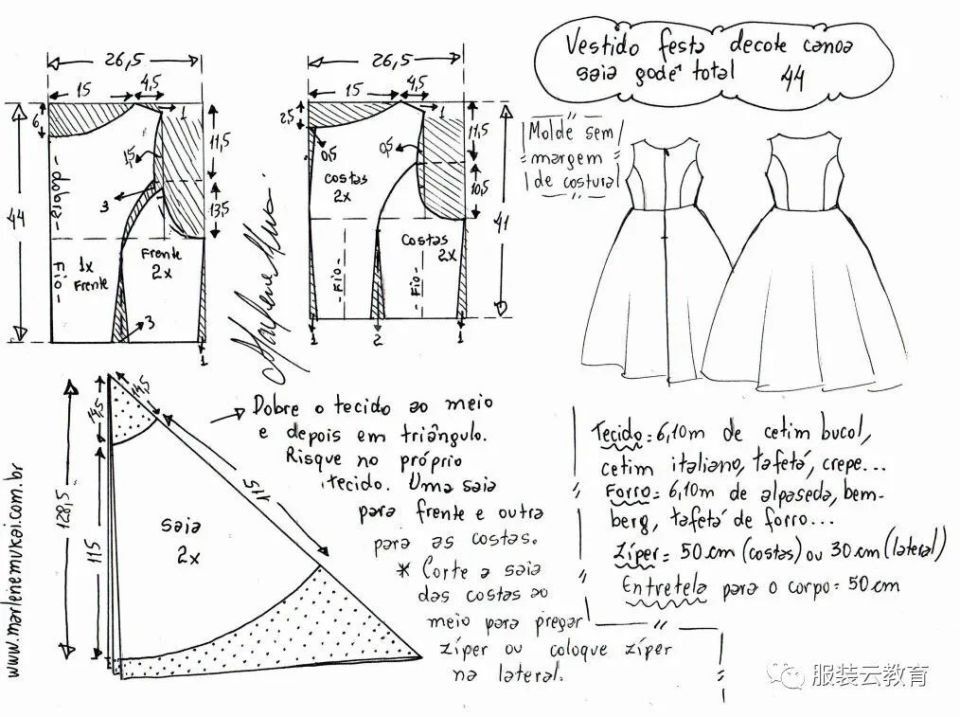 Vestido festa decote canoa
saia godê total 44
26,5
15
4,5
6
1
11,5
1,5
3
13,5
44
dobrado
Fio
1x
Frente
Frente
2x
3
1
26,5
15
4,5
2,5
1
11,5
0,5
0,5
costas
2x
10,5
41
costas
2x
Fio
Fio
1
2
1
Molde sem
margem
de costura
14,5
14,5
128,5
115
115
saia
2x
www.marlenemukai.com.br
Dobre o tecido ao meio
e depois em triângulo.
Risque no próprio
tecido. Uma saia
para frente e outra
para as costas.
* Corte a saia
das costas ao
meio para pregar
zíper ou coloque zíper
na lateral.
Tecido = 6,10m de cetim bucol,
cetim italiano, tafetá, crepe...
Forro = 6,10m de alpaseda, bem-
berg, tafetá de forro...
Zíper = 50cm (costas) ou 30cm (lateral)
Entretela para o corpo = 50cm
服装云教育